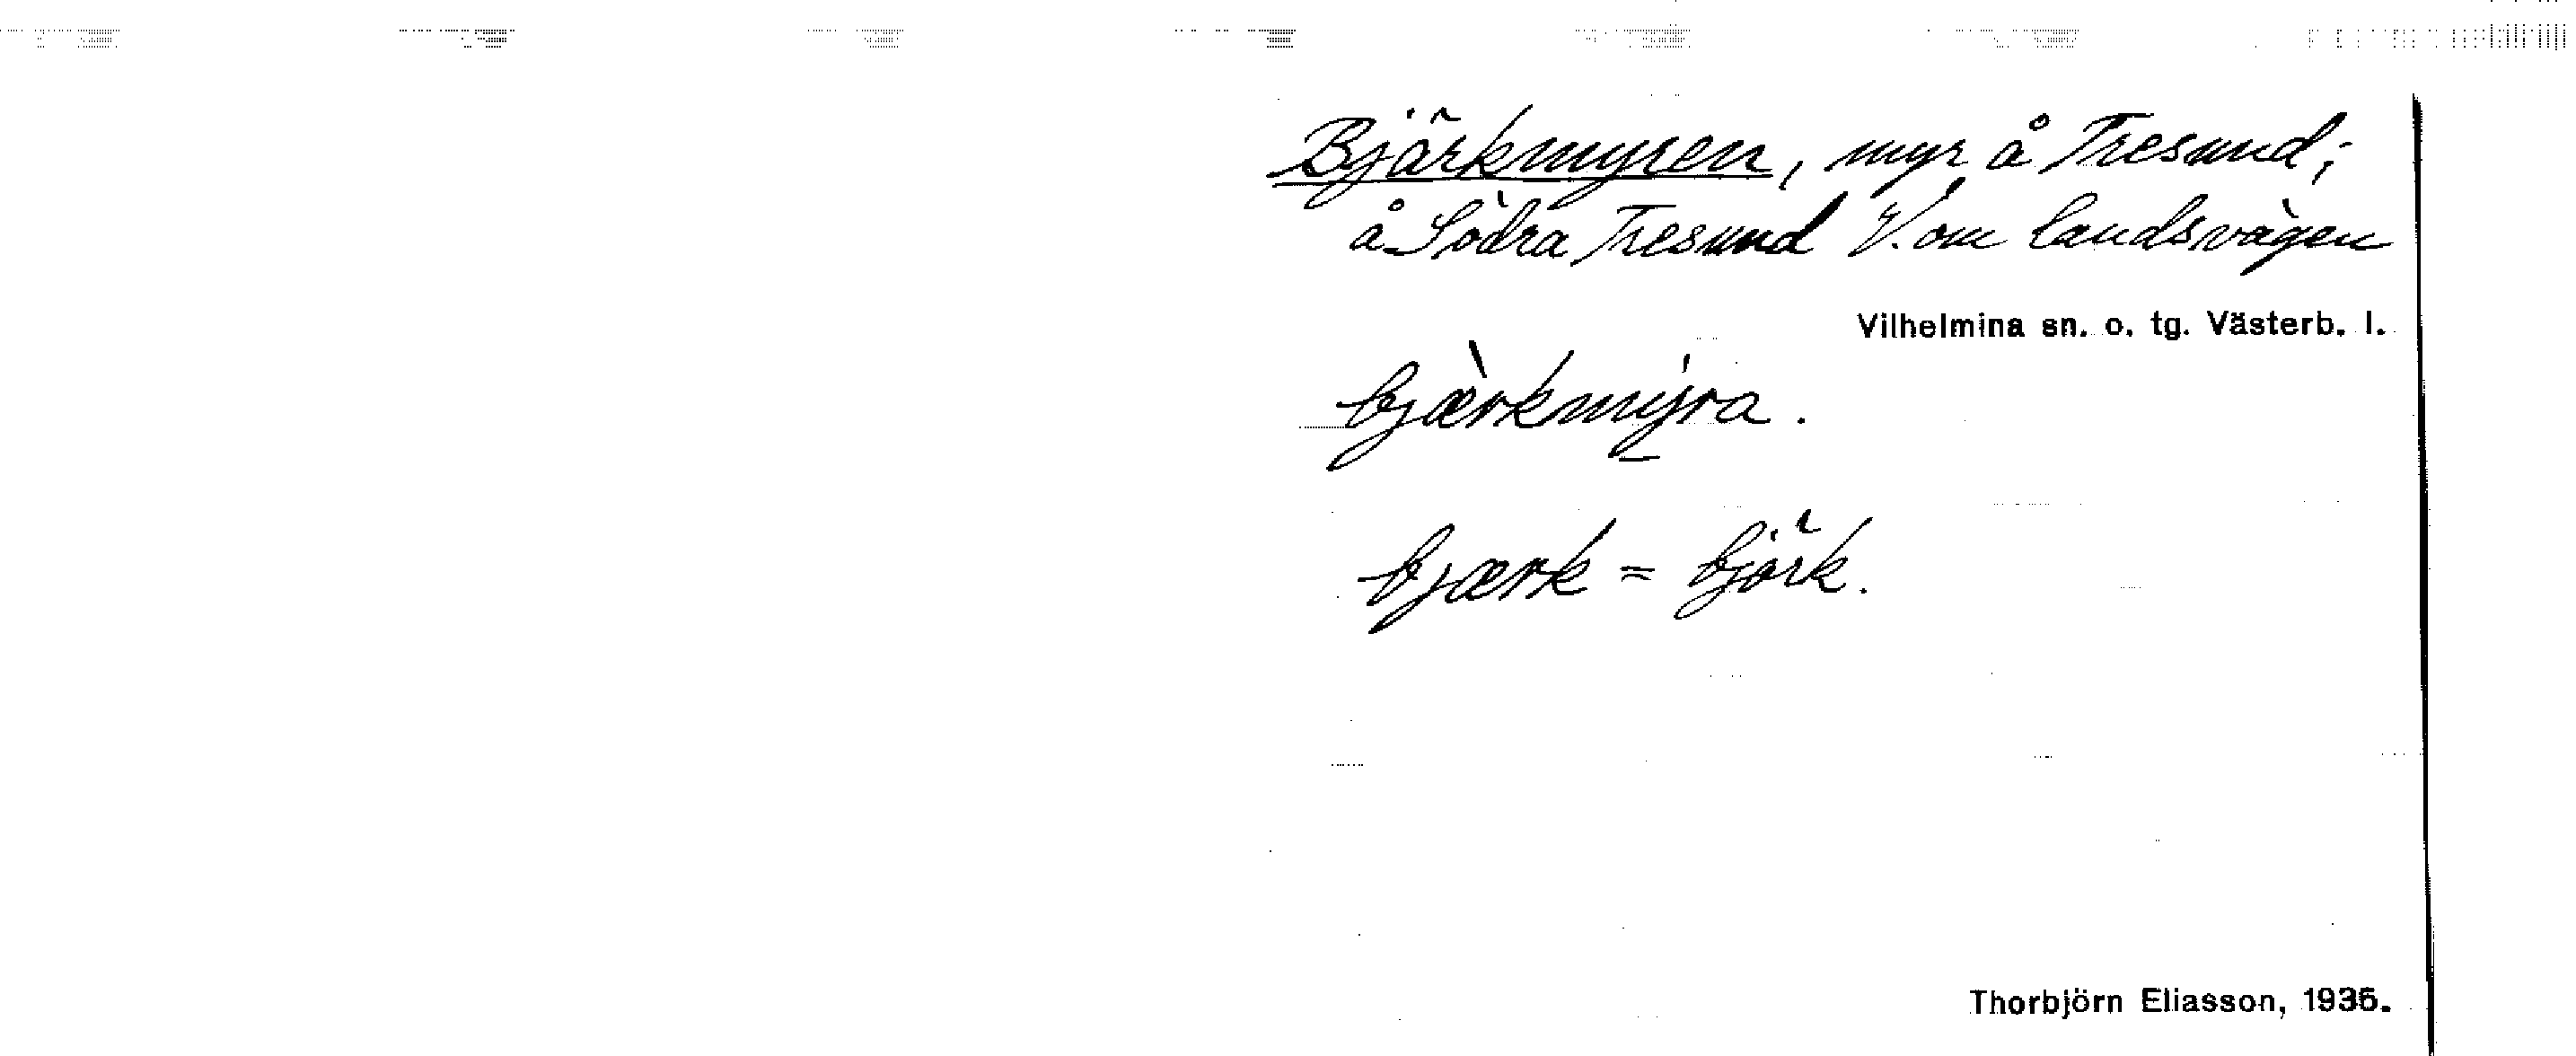 Bjärkmyren, myr å Tresund;
å Södra Tresund V. om landsvägen
Vilhelmina sn. o. tg. Västerb. l.
bjærkmyra.
bjærk = björk.
Thorbjörn Eliasson, 1935.